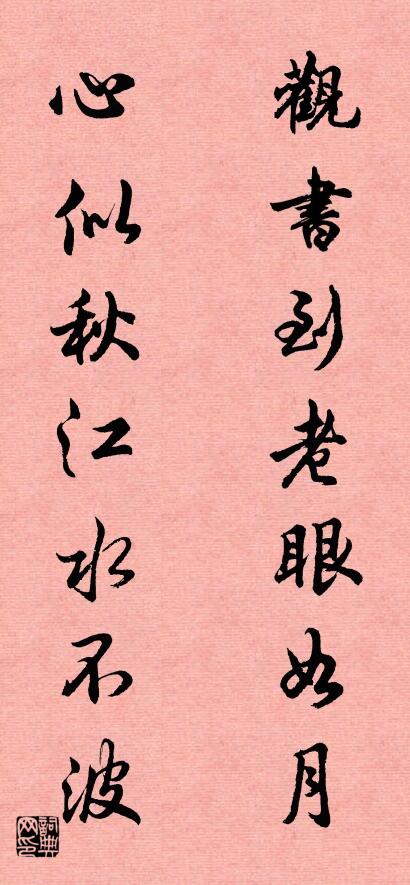 觀書到老眼如月
心似秋江水不波
詞典网印